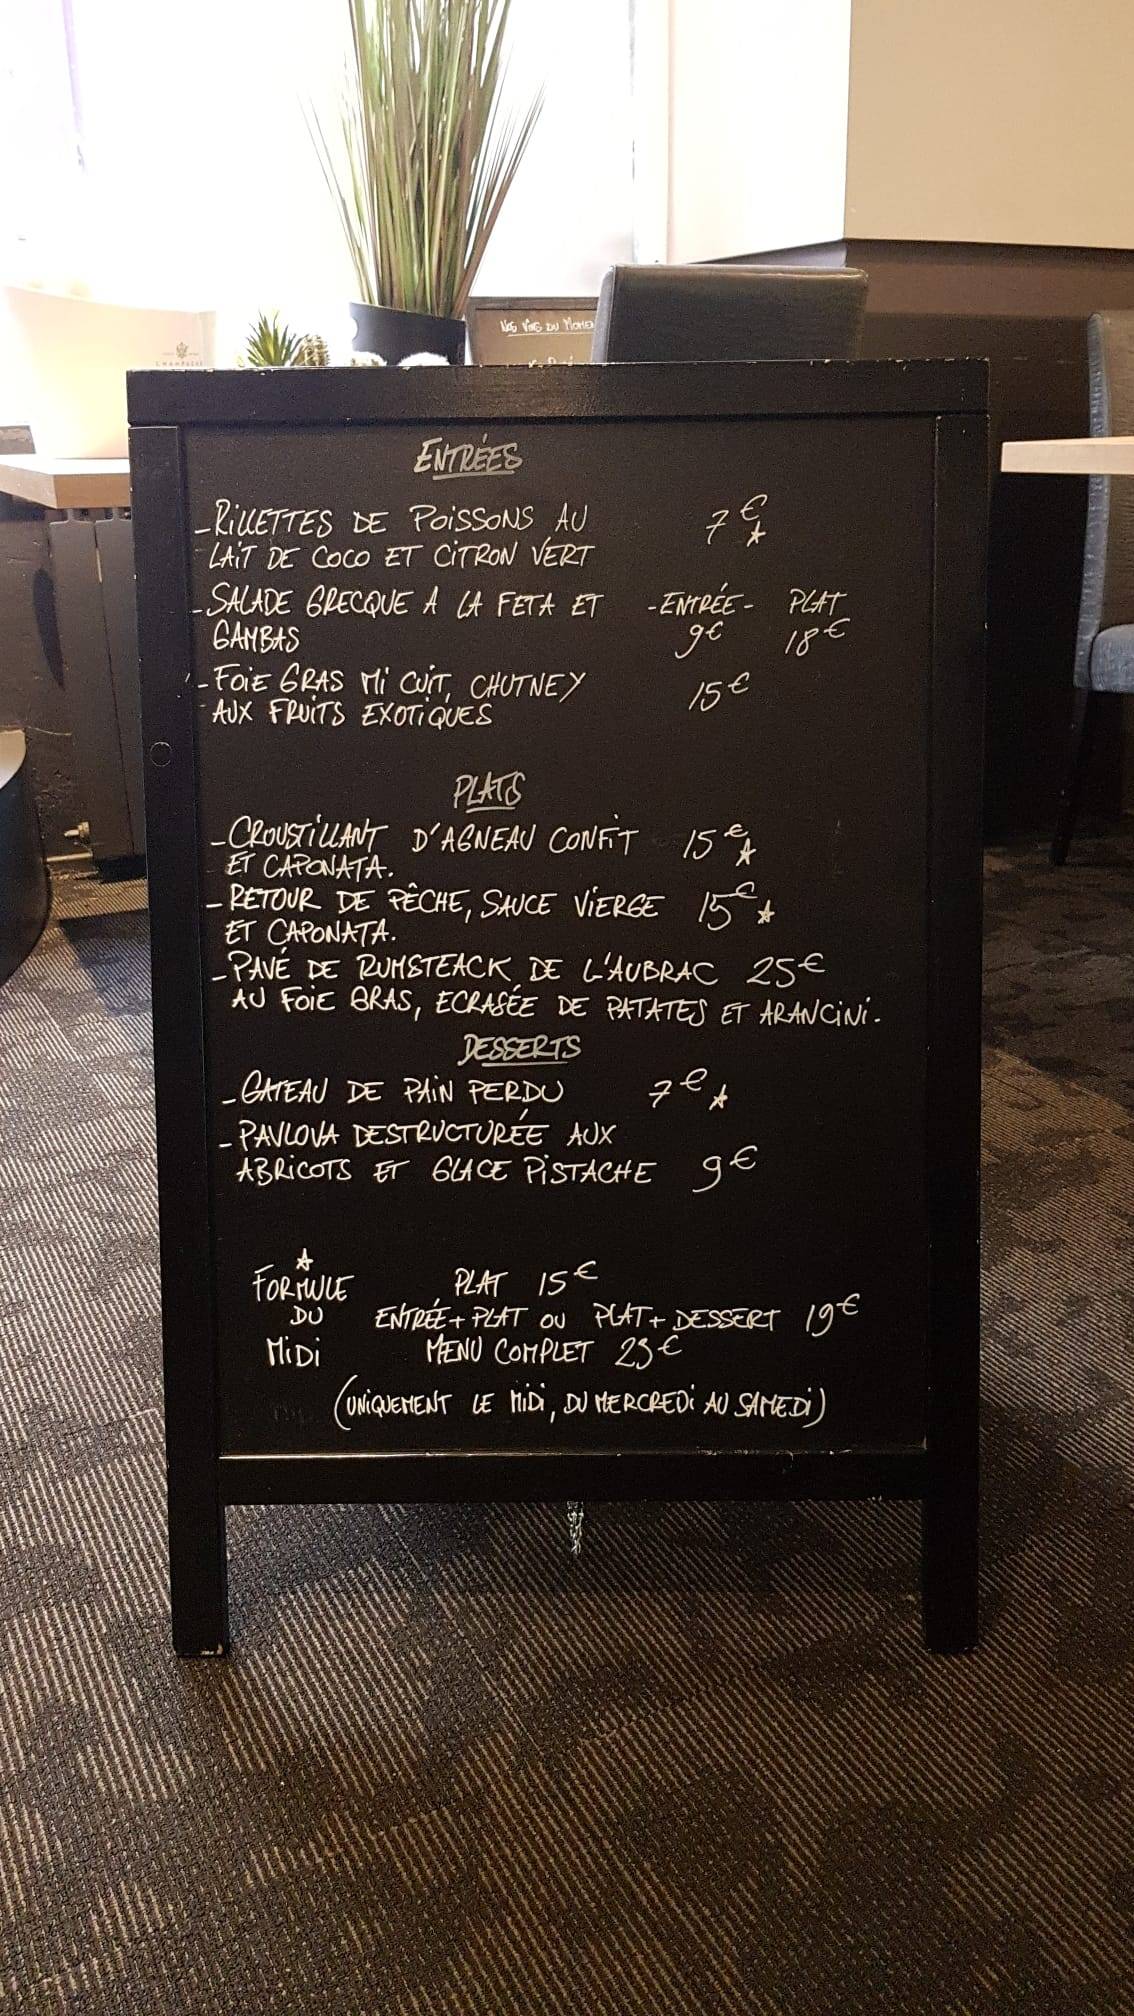 CHAMPAGNE
Nos Vins du Momen
ENTRÉES
- RILLETTES DE POISSONS AU 7€ ☆
LAIT DE COCO ET CITRON VERT
- SALADE GRECQUE A LA FETA ET - ENTRÉE - PLAT
GAMBAS 9€ 18€
- FOIE GRAS MI CUIT, CHUTNEY 15€
AUX FRUITS EXOTIQUES
PLATS
- CROUSTILLANT D'AGNEAU CONFIT 15€ ☆
ET CAPONATA.
- RETOUR DE PÊCHE, SAUCE VIERGE 15€ ☆
ET CAPONATA.
- PAVÉ DE RUMSTEACK DE L'AUBRAC 25€
AU FOIE GRAS, ECRASÉE DE PATATES ET ARANCINI.
DESSERTS
- GATEAU DE PAIN PERDU 7€ ☆
- PAVLOVA DESTRUCTURÉE AUX
ABRICOTS ET GLACE PISTACHE 9€
☆
FORMULE PLAT 15€
DU ENTRÉE + PLAT OU PLAT + DESSERT 19€
MIDI MENU COMPLET 23€
(UNIQUEMENT LE MIDI, DU MERCREDI AU SAMEDI)